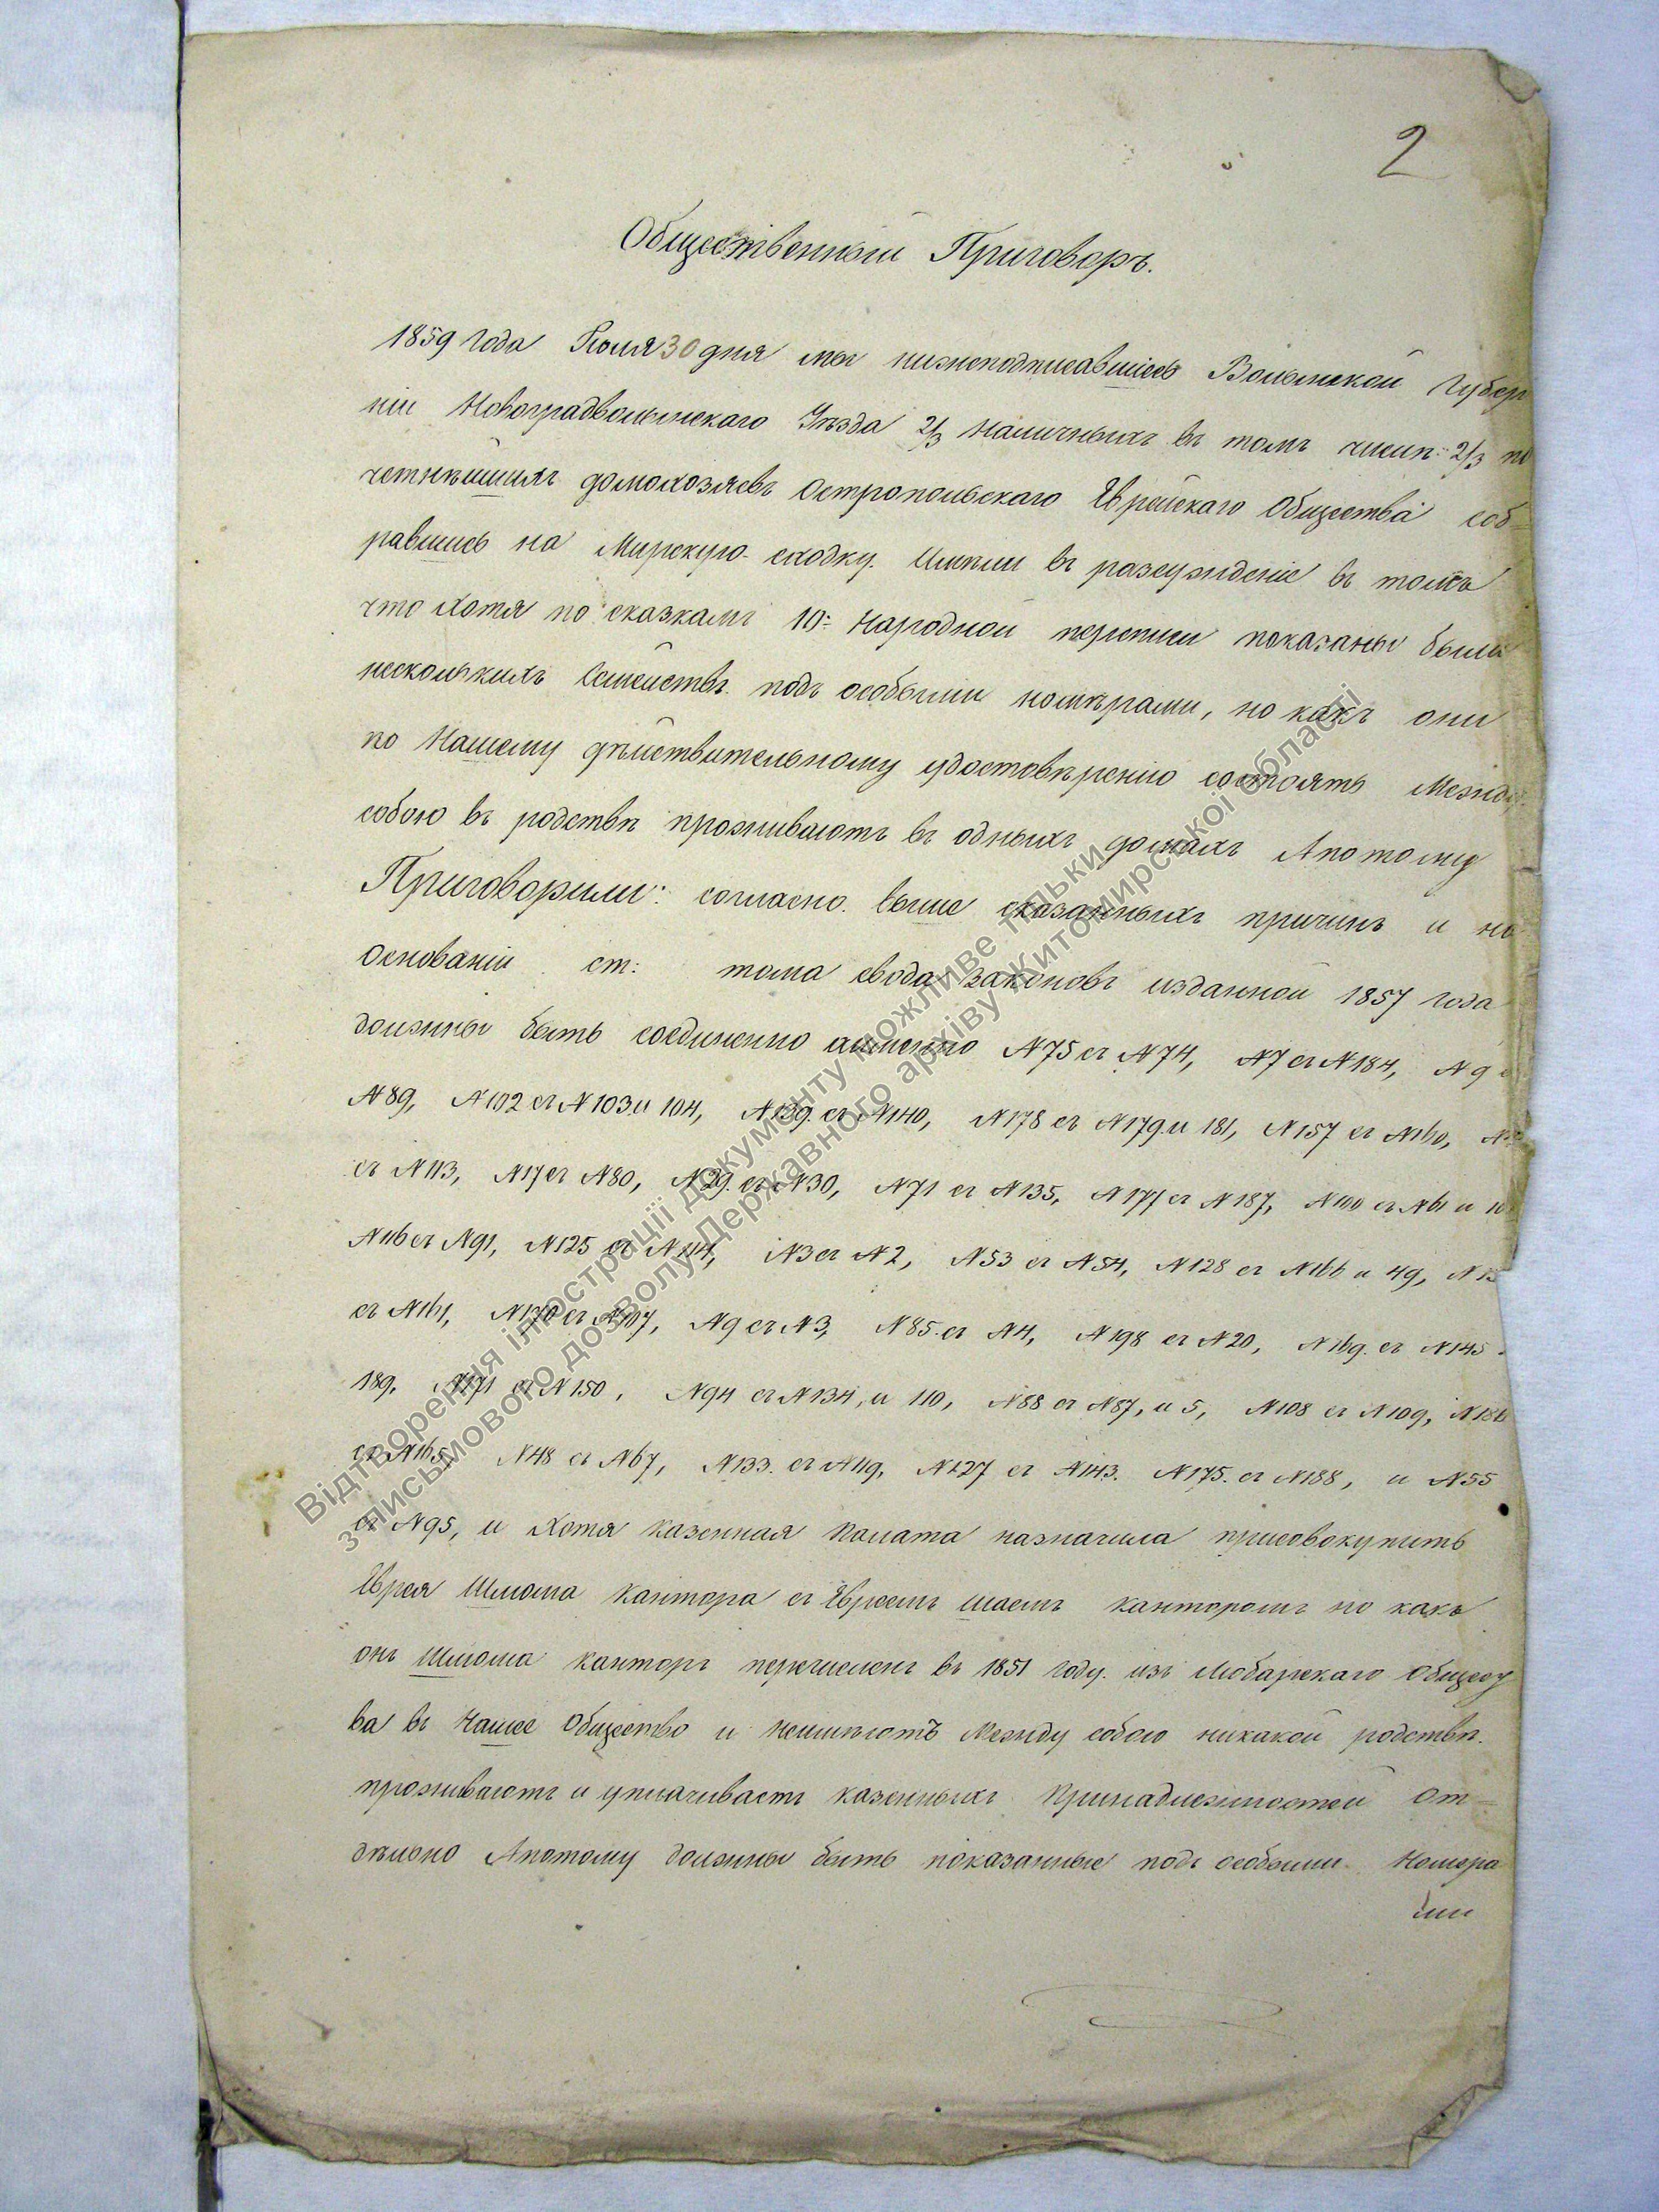 2
Общественный Приговоръ.
1859 года Іюля 30 дня мы нижеподписавшіесь Волынской Губер
ніи Новоградволынскаго Уѣзда 2/3 наличныхъ въ томъ числѣ: 2/3 по
четнѣйшихъ домохозяевъ Остропольскаго Еврейскаго Общества соб=
равшись на Мирскую сходку. Имѣли въ разсужденіе въ томъ
что хотя по сказкамъ 10: Народной переписи показаны были
несколькихъ Семействъ подъ особыми номѣрами, но какъ они
по Нашему дѣйствительному удостовѣренію состоятъ Между
собою въ родствѣ проживаютъ въ одныхъ домахъ Апотому
Приговорили: согласно. выше сказанныхъ причинъ и на
Основаніи ст: тома свода законовъ изданной 1857 года
должны быть соединенно аименно N75 съ N74, N7 съ N184, N9
N89, N102 съ N103 и 104, N139. съ N140, N178 съ N179 и 181, N157 съ N160,
съ N113, N17 съ N80, N29. съ N30, N71 съ N135, N177 съ N187, N100 съ N61 и
N116 съ N91, N125 съ N114, N3 съ N2, N53 съ N54, N128 съ N166 и 49,
съ N161, N170 съ N107, N9 съ N3, N85. съ N4, N198 съ N20, N169. съ N145
189, N171 съ N150, N94 съ N134, и 110, N88 съ N87, и 5, N108 съ N109,
съ N165, N48 съ N67, N133. съ N119, N127 съ N143. N175. съ N188, и N55
съ N95, и Хотя казенная Палата назначила присовокупить
Еврея Шлома Кантора съ Евреемъ Шаемъ канторомъ но какъ
онъ Шлома Канторъ перечисленъ въ 1851 году. изъ Любарскаго Общест
ва въ Наше Общество и неимѣютъ Между собою никакой родствѣ.
проживаютъ и уплачиваетъ казенныхъ Принадлежностей От=
дѣльно Апотому должны быть показанные подъ особыми Номера
ми
Відтворення ілюстрації документу можливе тільки
з письмового дозволу Державного архіву Житомирської області